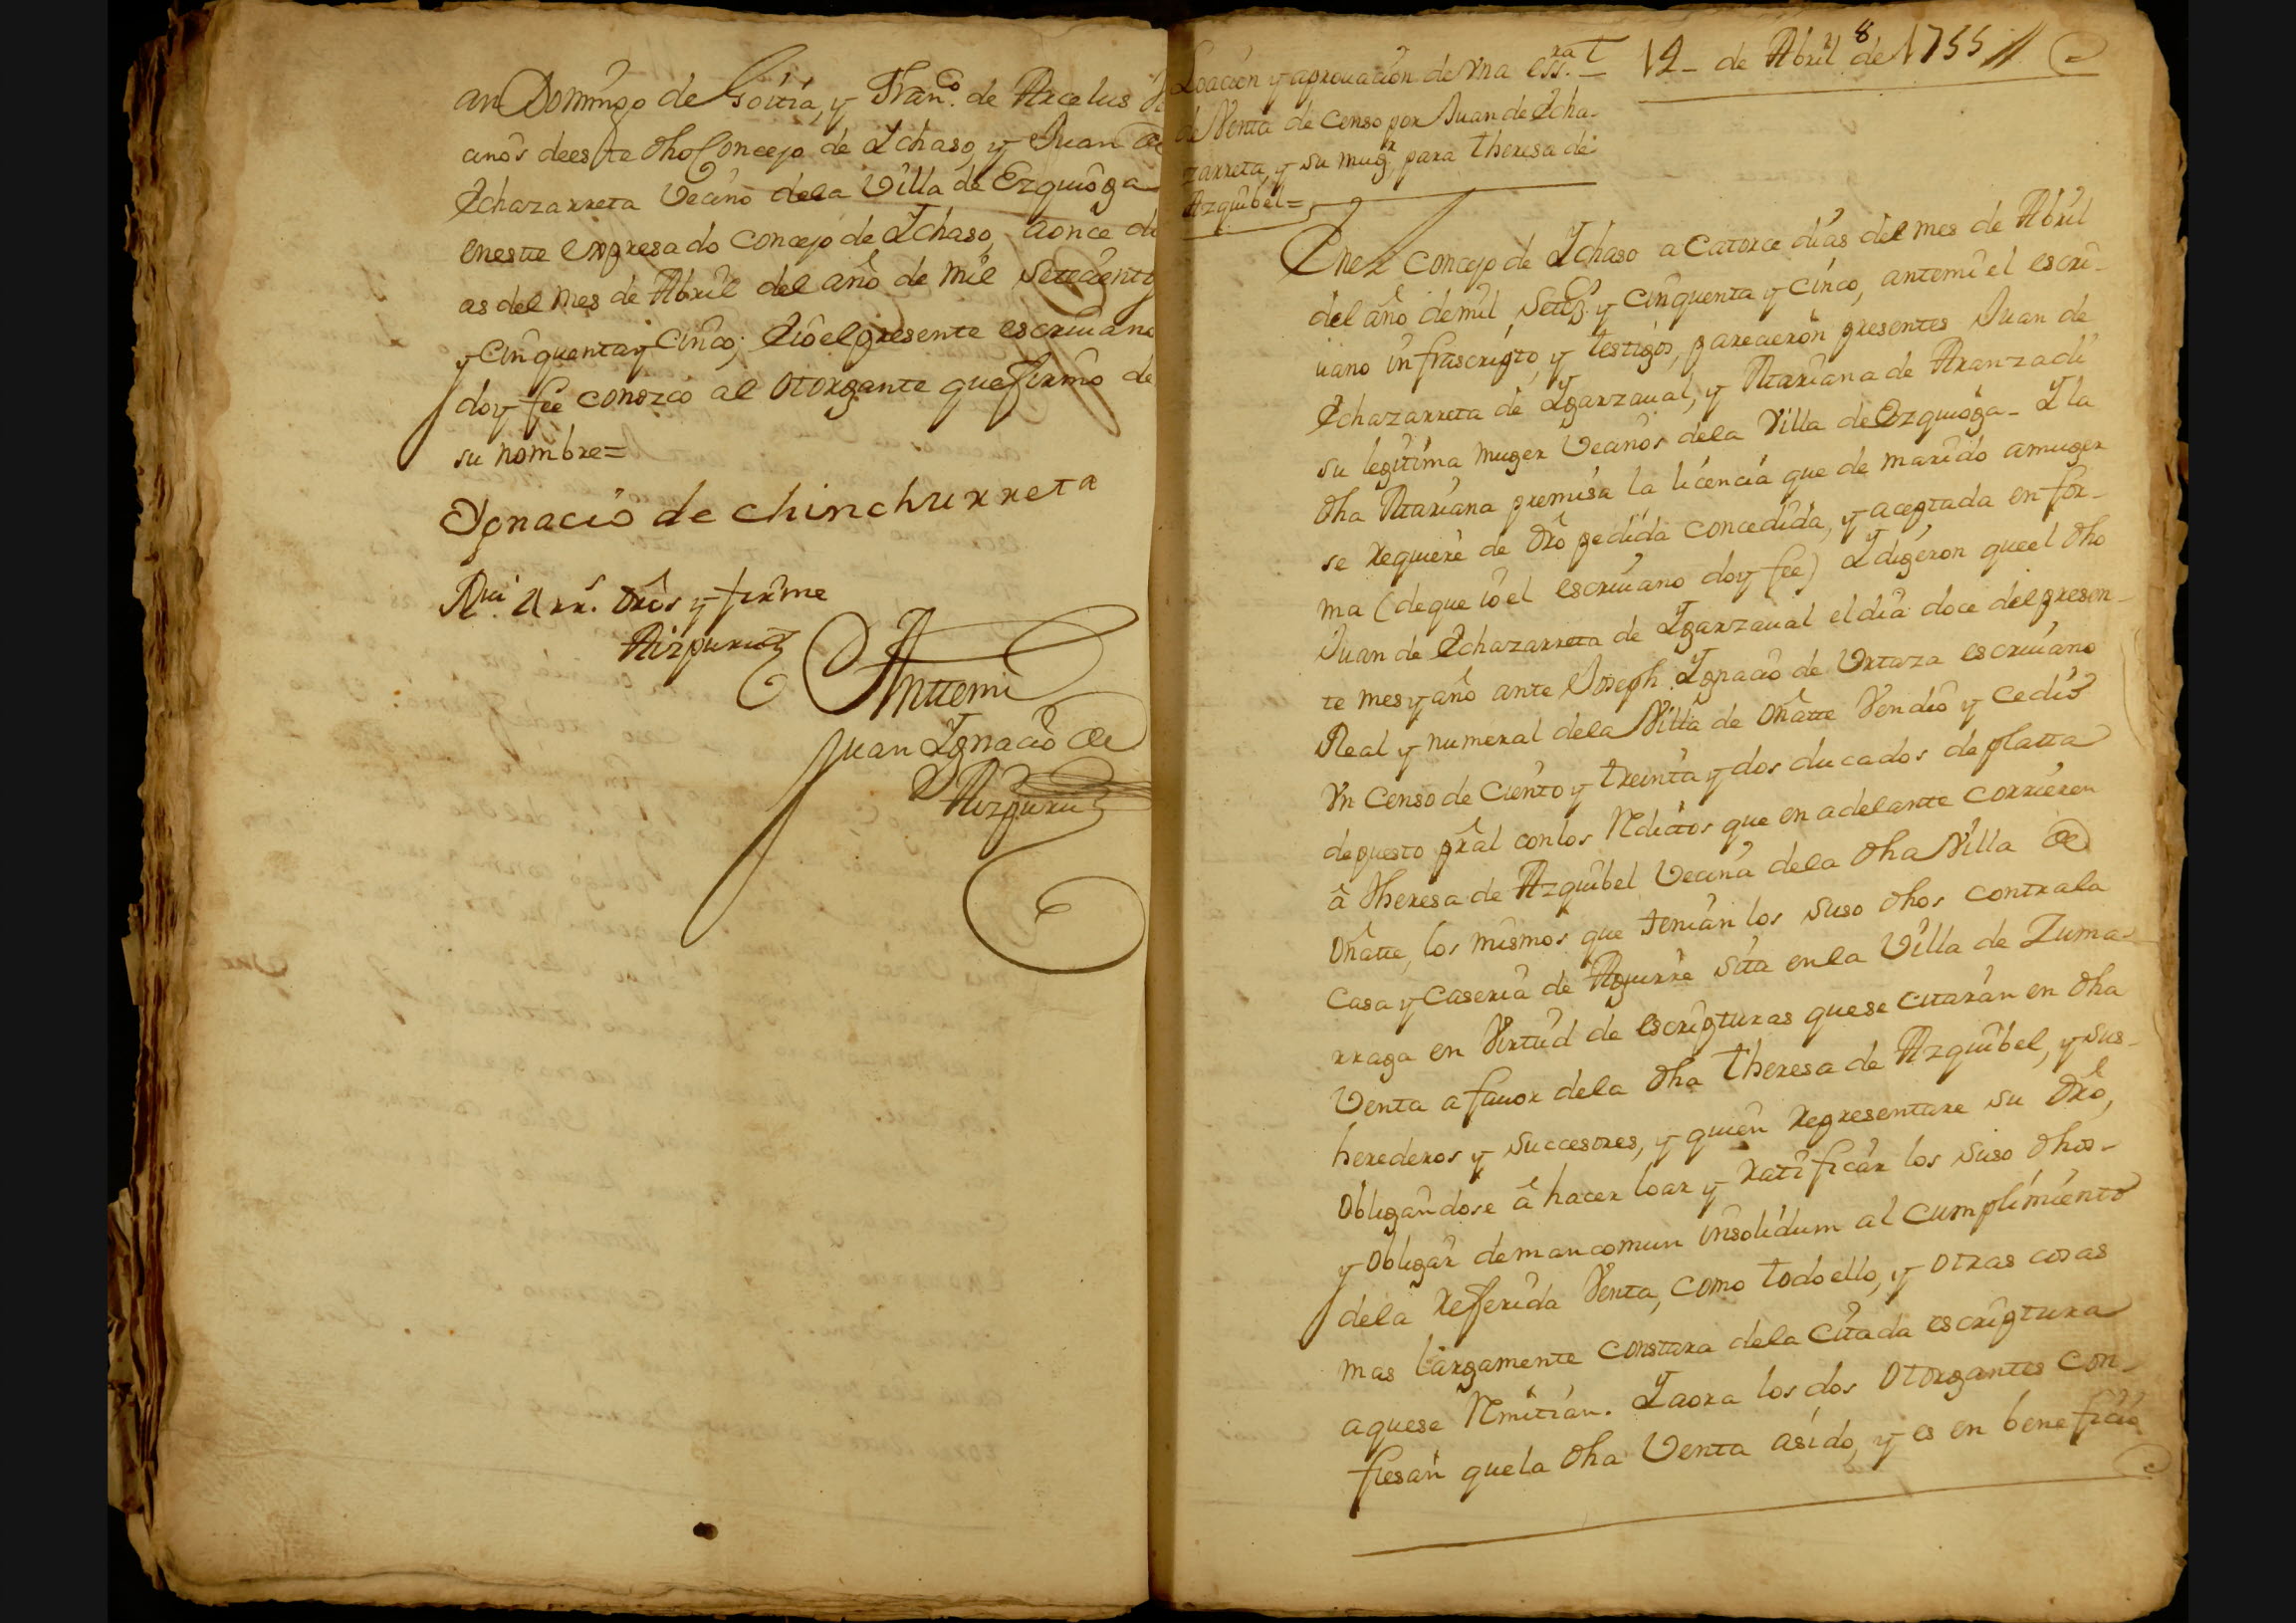 an Domingo de Goitia, y Fran.co de Arcelus Ve
cinos deeste dho Concejo de Ychaso, y Juan de
Echazarreta Vecino dela Villa de Ezquioga
eneste expresado Concejo de Ychaso, aonce di
as del mes de Abril del año de mil setecientos
y Cinquenta y Cinco; Eio el presente escriuano
doy fee conozco al Otorgante que firmo de
su nombre=
Ygnacio de chinchurreta
drôs y firme
Aizpuru
Anttemi
Juan Ygnacio de
Aizpuru
Loacion y aprouacion de Vna ess.ra
de Venta de Censo por Juan de Echa-
zarreta, y su mug.r para theresa de
Azquibel=
8
12 - de Abril de 1755 //
Enel Concejo de Ychaso a Catorce dias del mes de Abril
del año demil Setez.s y Cinquenta y Cinco, antemi el escri-
uano infrascripto, y testigos, parecieron presentes Juan de
Echazarreta de Ygarzaual, y Mariana de Aranzadi
su legitima muger Vecinos dela Villa de Ezquioga - Y la
dha Mariana premisa la licencia que de marido amuger
se requiere de drô pedida concedida, y aceptada en for-
ma (deque io el escriuano doy fee) Y digeron queel dho
Juan de Echazarreta de Ygarzaual el dia doce del presen-
te mes y año ante Joseph Ygnacio de Vrtaza escriuano
Real y numeral dela Villa de Oñatte Vendio y Cedio
Vn Censo de Ciento y treinta y dos ducados de platta
depuesto pral con los Reditos que en adelante corrieren
â Theresa de Azquibel Vecina dela dha Villa de
Oñatte, los mismos que tenian los suso dhos contrala
Casa y Caseria de Aguirre sita en la Villa de Zuma-
rraga en Virtud de escripturas quese citarán en dha
Venta a fauor dela dha theresa de Azquibel, y sus-
herederos y Succesores, y quien Representare su drô,
Obligandose â hacer loar y ratificar los suso dhos-
y Obligar demancomun insolidum al Cumplimiento
dela Refferida Venta, como todo ello, y otras cosas
mas largamente constara dela Citada escriptura
aquese Rmitian. Y aora los dos Otorgantes con-
fiesan quela dha Venta asido, y es en beneficio